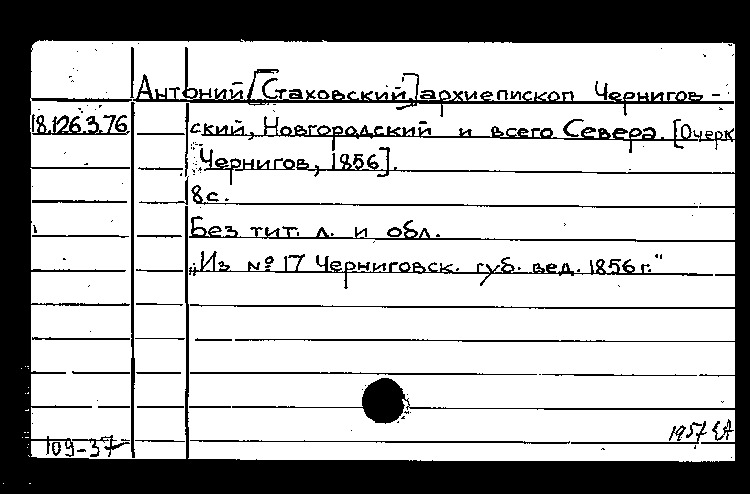 Антоний [Стаховский] архиепископ Чернигов-
18.126.3.76 ский, Новгородский и всего Севера. [Очерк
Чернигов, 1856].
8 с.
Без тит. л. и обл.
„Из № 17 Черниговск. губ. вед. 1856 г."
1957 ЕА
109-37